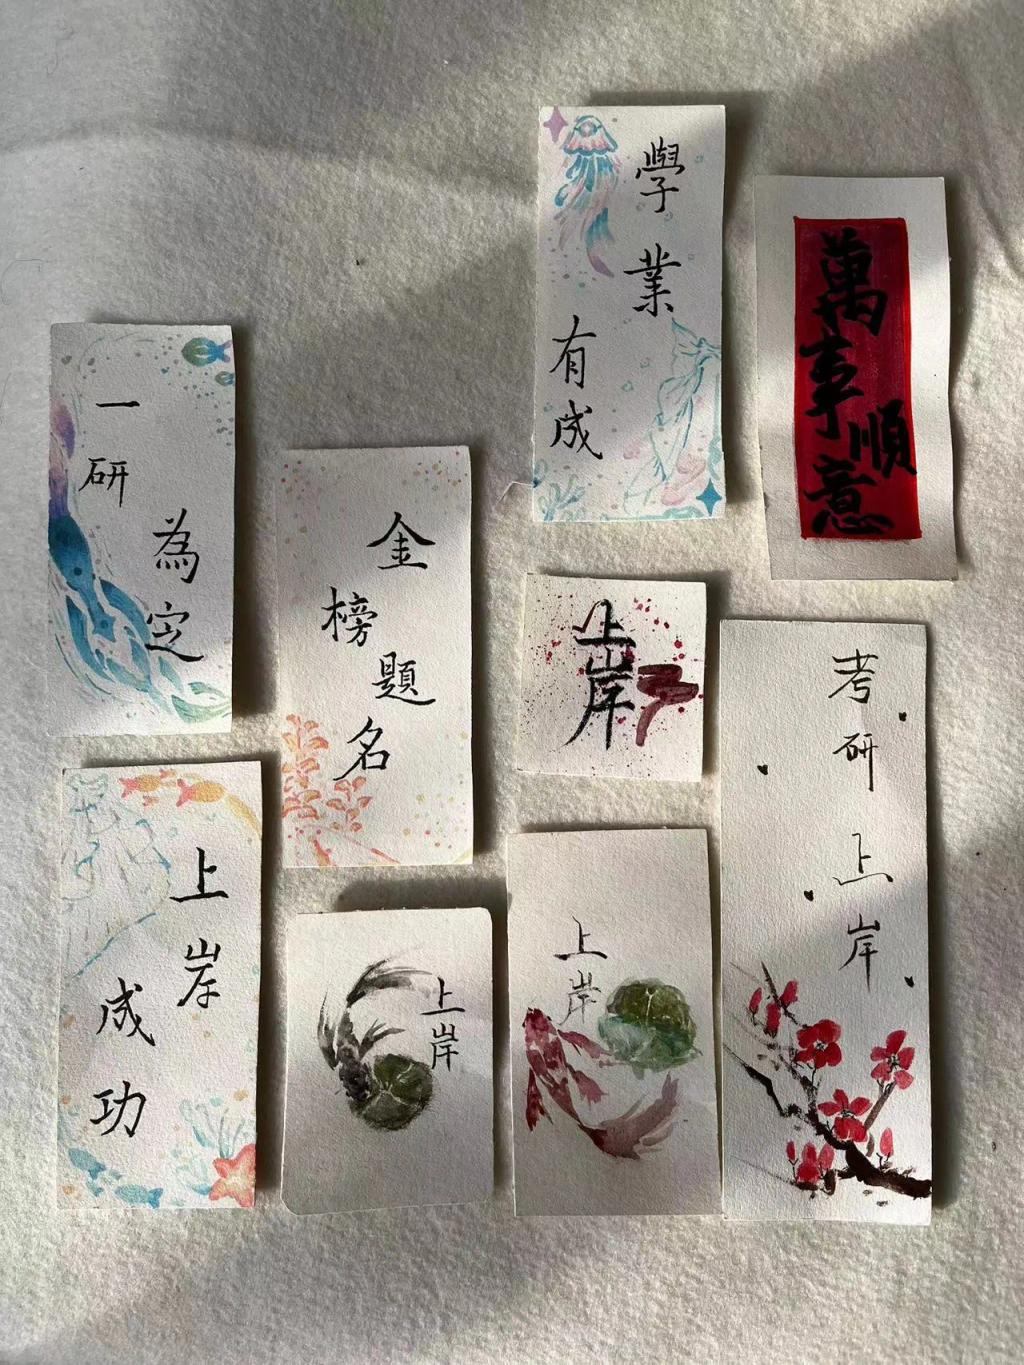 學業有成
萬事順意
一研為定
金榜題名
上岸
考研上岸
上岸成功
上岸
上岸